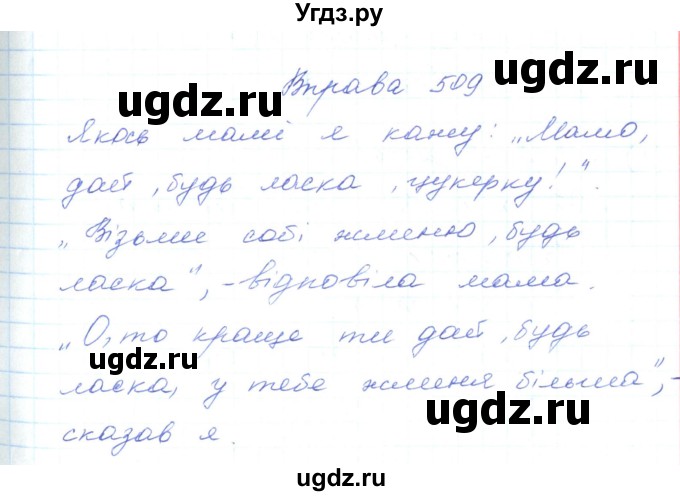 Угдз.ру
Вправа 509
ugdz.ru ugdz.ru
Якось мамі я кажу: „Мамо,
дай, будь ласка, цукерку!“.
„Візьми собі жменю, будь
ласка“, - відповіла мама.
„О, то краще ти дай, будь
ugdz.ru
ласка, у тебе жменя більша“, -
ugdz.ru
сказав я.
ugdz.ru